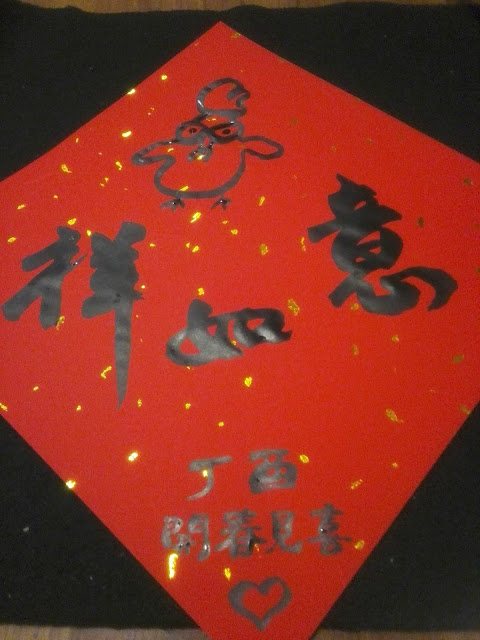 祥如意
丁酉
開春見喜